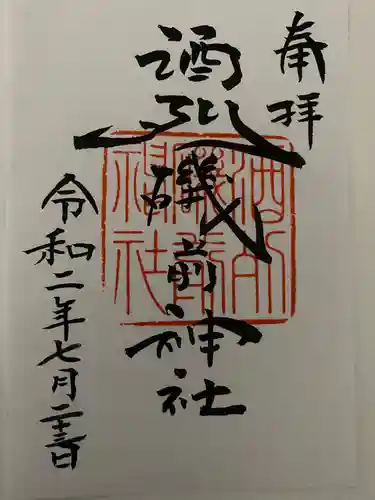 奉拝
酒列磯前神社
酒列
磯前
神社
令和二年七月二十三日